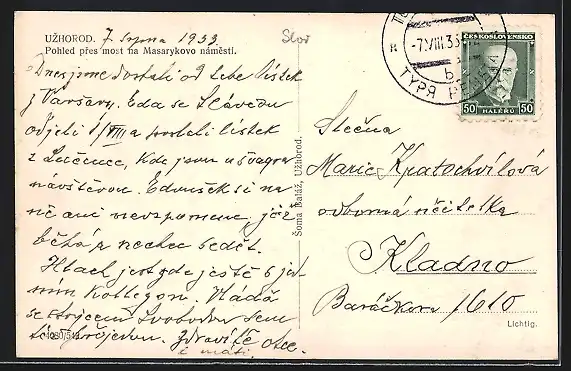 UŽHOROD. 7 srpna 1933
Pohled přes most na Masarykovo náměstí.
Slov
Dnes jsme dostali od Tebe lístek
z Varšavy. Eda se Slávkou
odjeli 1/VIII a poslali lístek
z Lučence, kde jsou u švagra
návštěvou. Edoušek si na
nic ani nevzpomene, již
běhá a nechce sedět.
jest gde ještě s
kollegou.
se strýcem Svobodou sem
Zdravítě otec
i máti.
Šoma Baláž, Užhorod.
-7.VIII.33
ČESKOSLOVENSKO
50 HALÉŘŮ 50
Slečna
Marie Kratochvílová
odborná učitelka
Kladno
Baráčkov 1610
Lichtig.